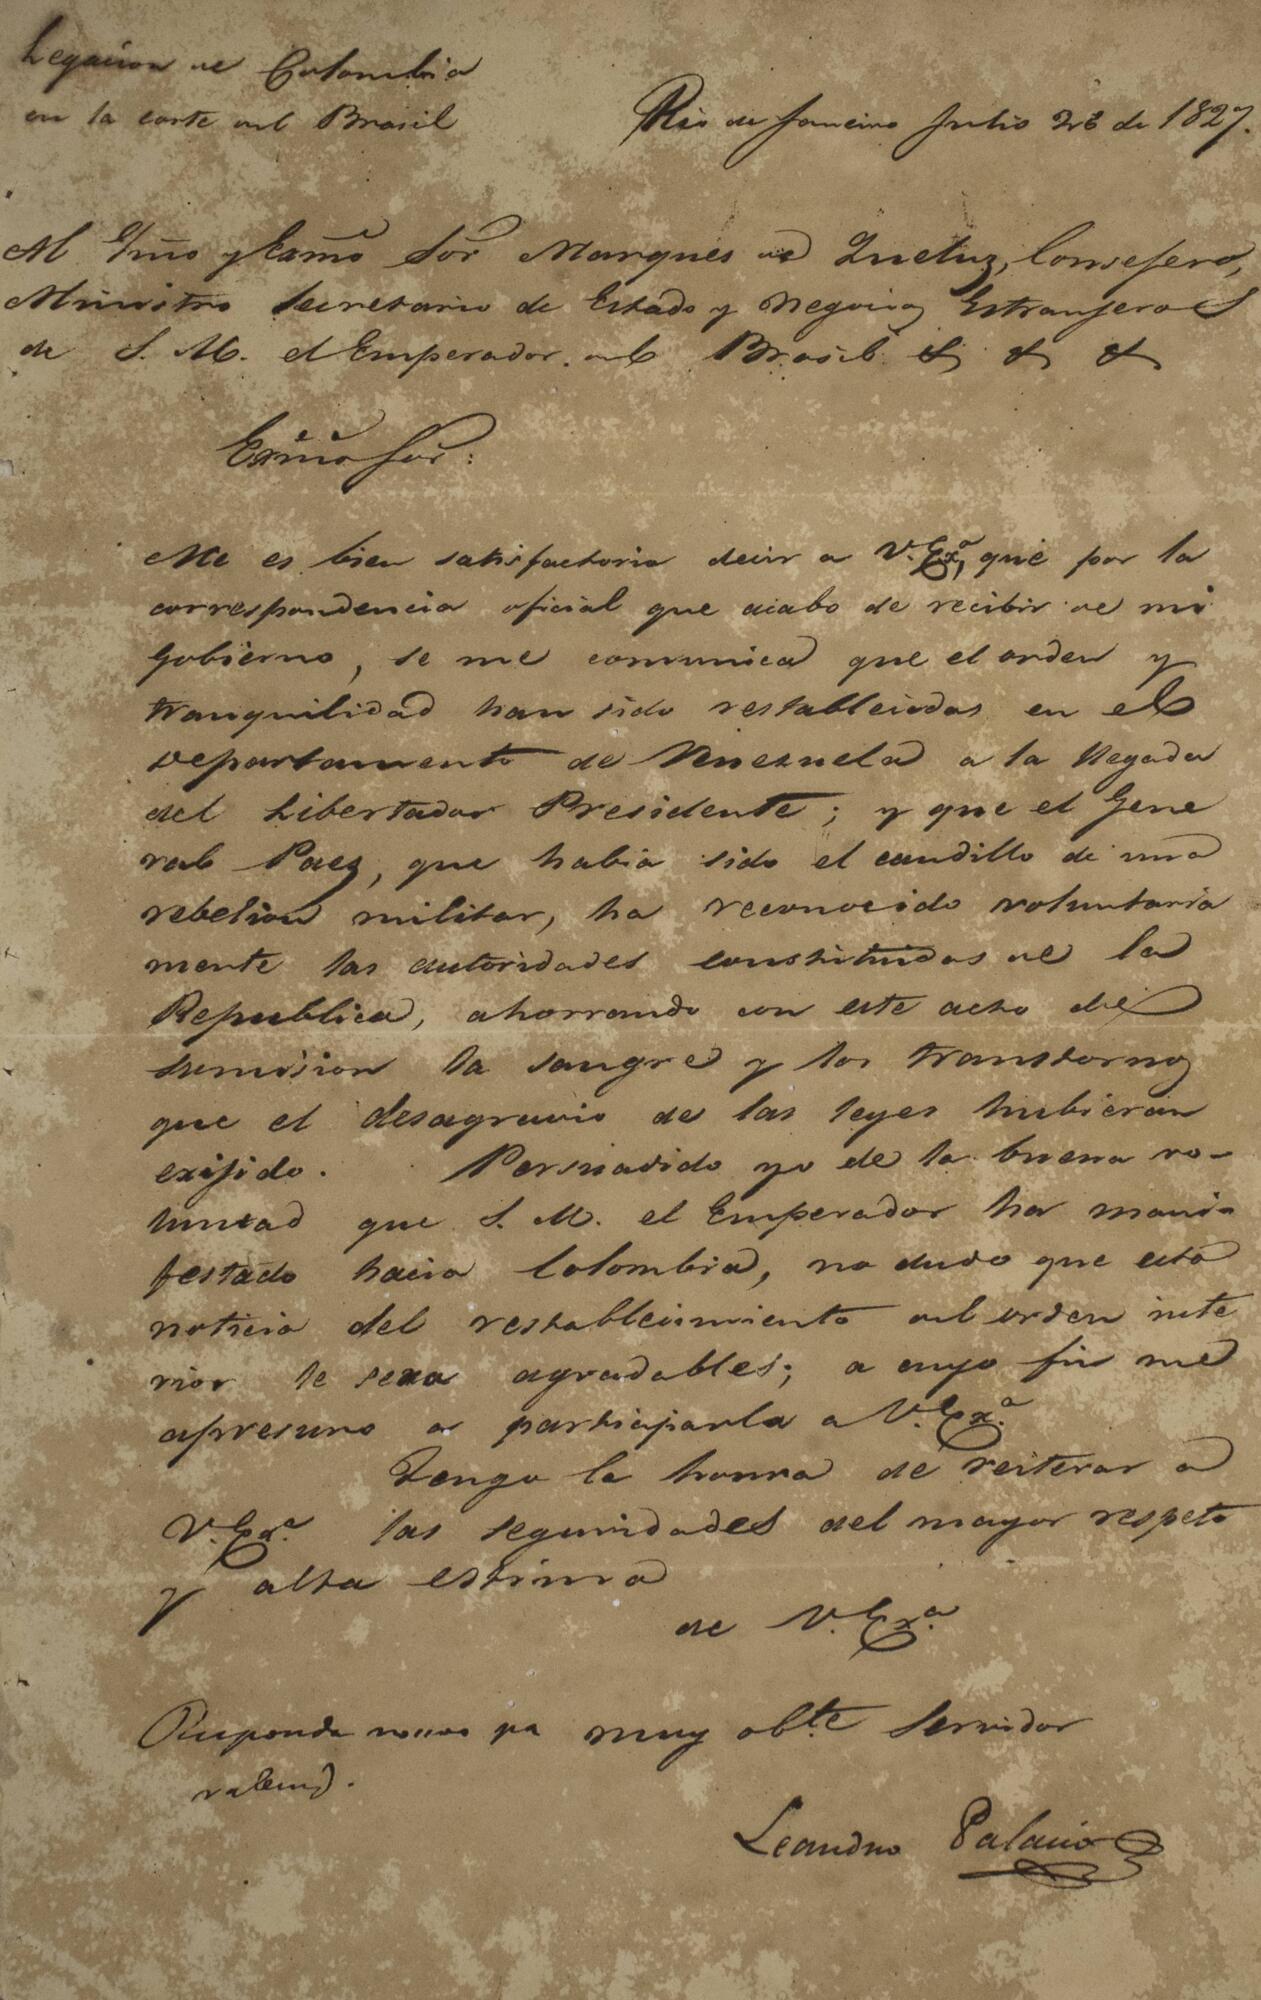 Legacion de Colombia
en la corte del Brasil
Rio de Janeiro Julio 26 de 1827.
Al Ylmo y Exmo Sor Marques de Queluz, Consejero,
Ministro Secretario de Estado y Negocios Estranjeros
de S. M. el Emperador del Brasil & & &
Exmo Sor:
Me es bien satisfactorio decir a V. Exa, que por la
correspondencia oficial que acabo de recibir de mi
Gobierno, se me comunica que el orden y
tranquilidad han sido restablecidos en el
Departamento de Venezuela a la llegada
del Libertador Presidente; y que el Gene
ral Paez, que habia sido el caudillo de una
rebelion militar, ha reconocido voluntaria
mente las autoridades constituidas de la
Republica, ahorrando con este acto de
sumision la sangre y los transtornos
que el desagravio de las leyes hubieran
exijido. Persuadido yo de la buena vo-
luntad que S. M. el Emperador ha mani-
festado hacia Colombia, no dudo que esta
noticia del restablecimiento del orden inte
rior le sera agradables; a cuyo fin me
apresuro a participarla a V. Exa.
Tengo la honra de reiterar a
V. Exa. las seguridades del mayor respeto
y alta estima
de V. Exa.
muy obte servidor
Leandro Palacios